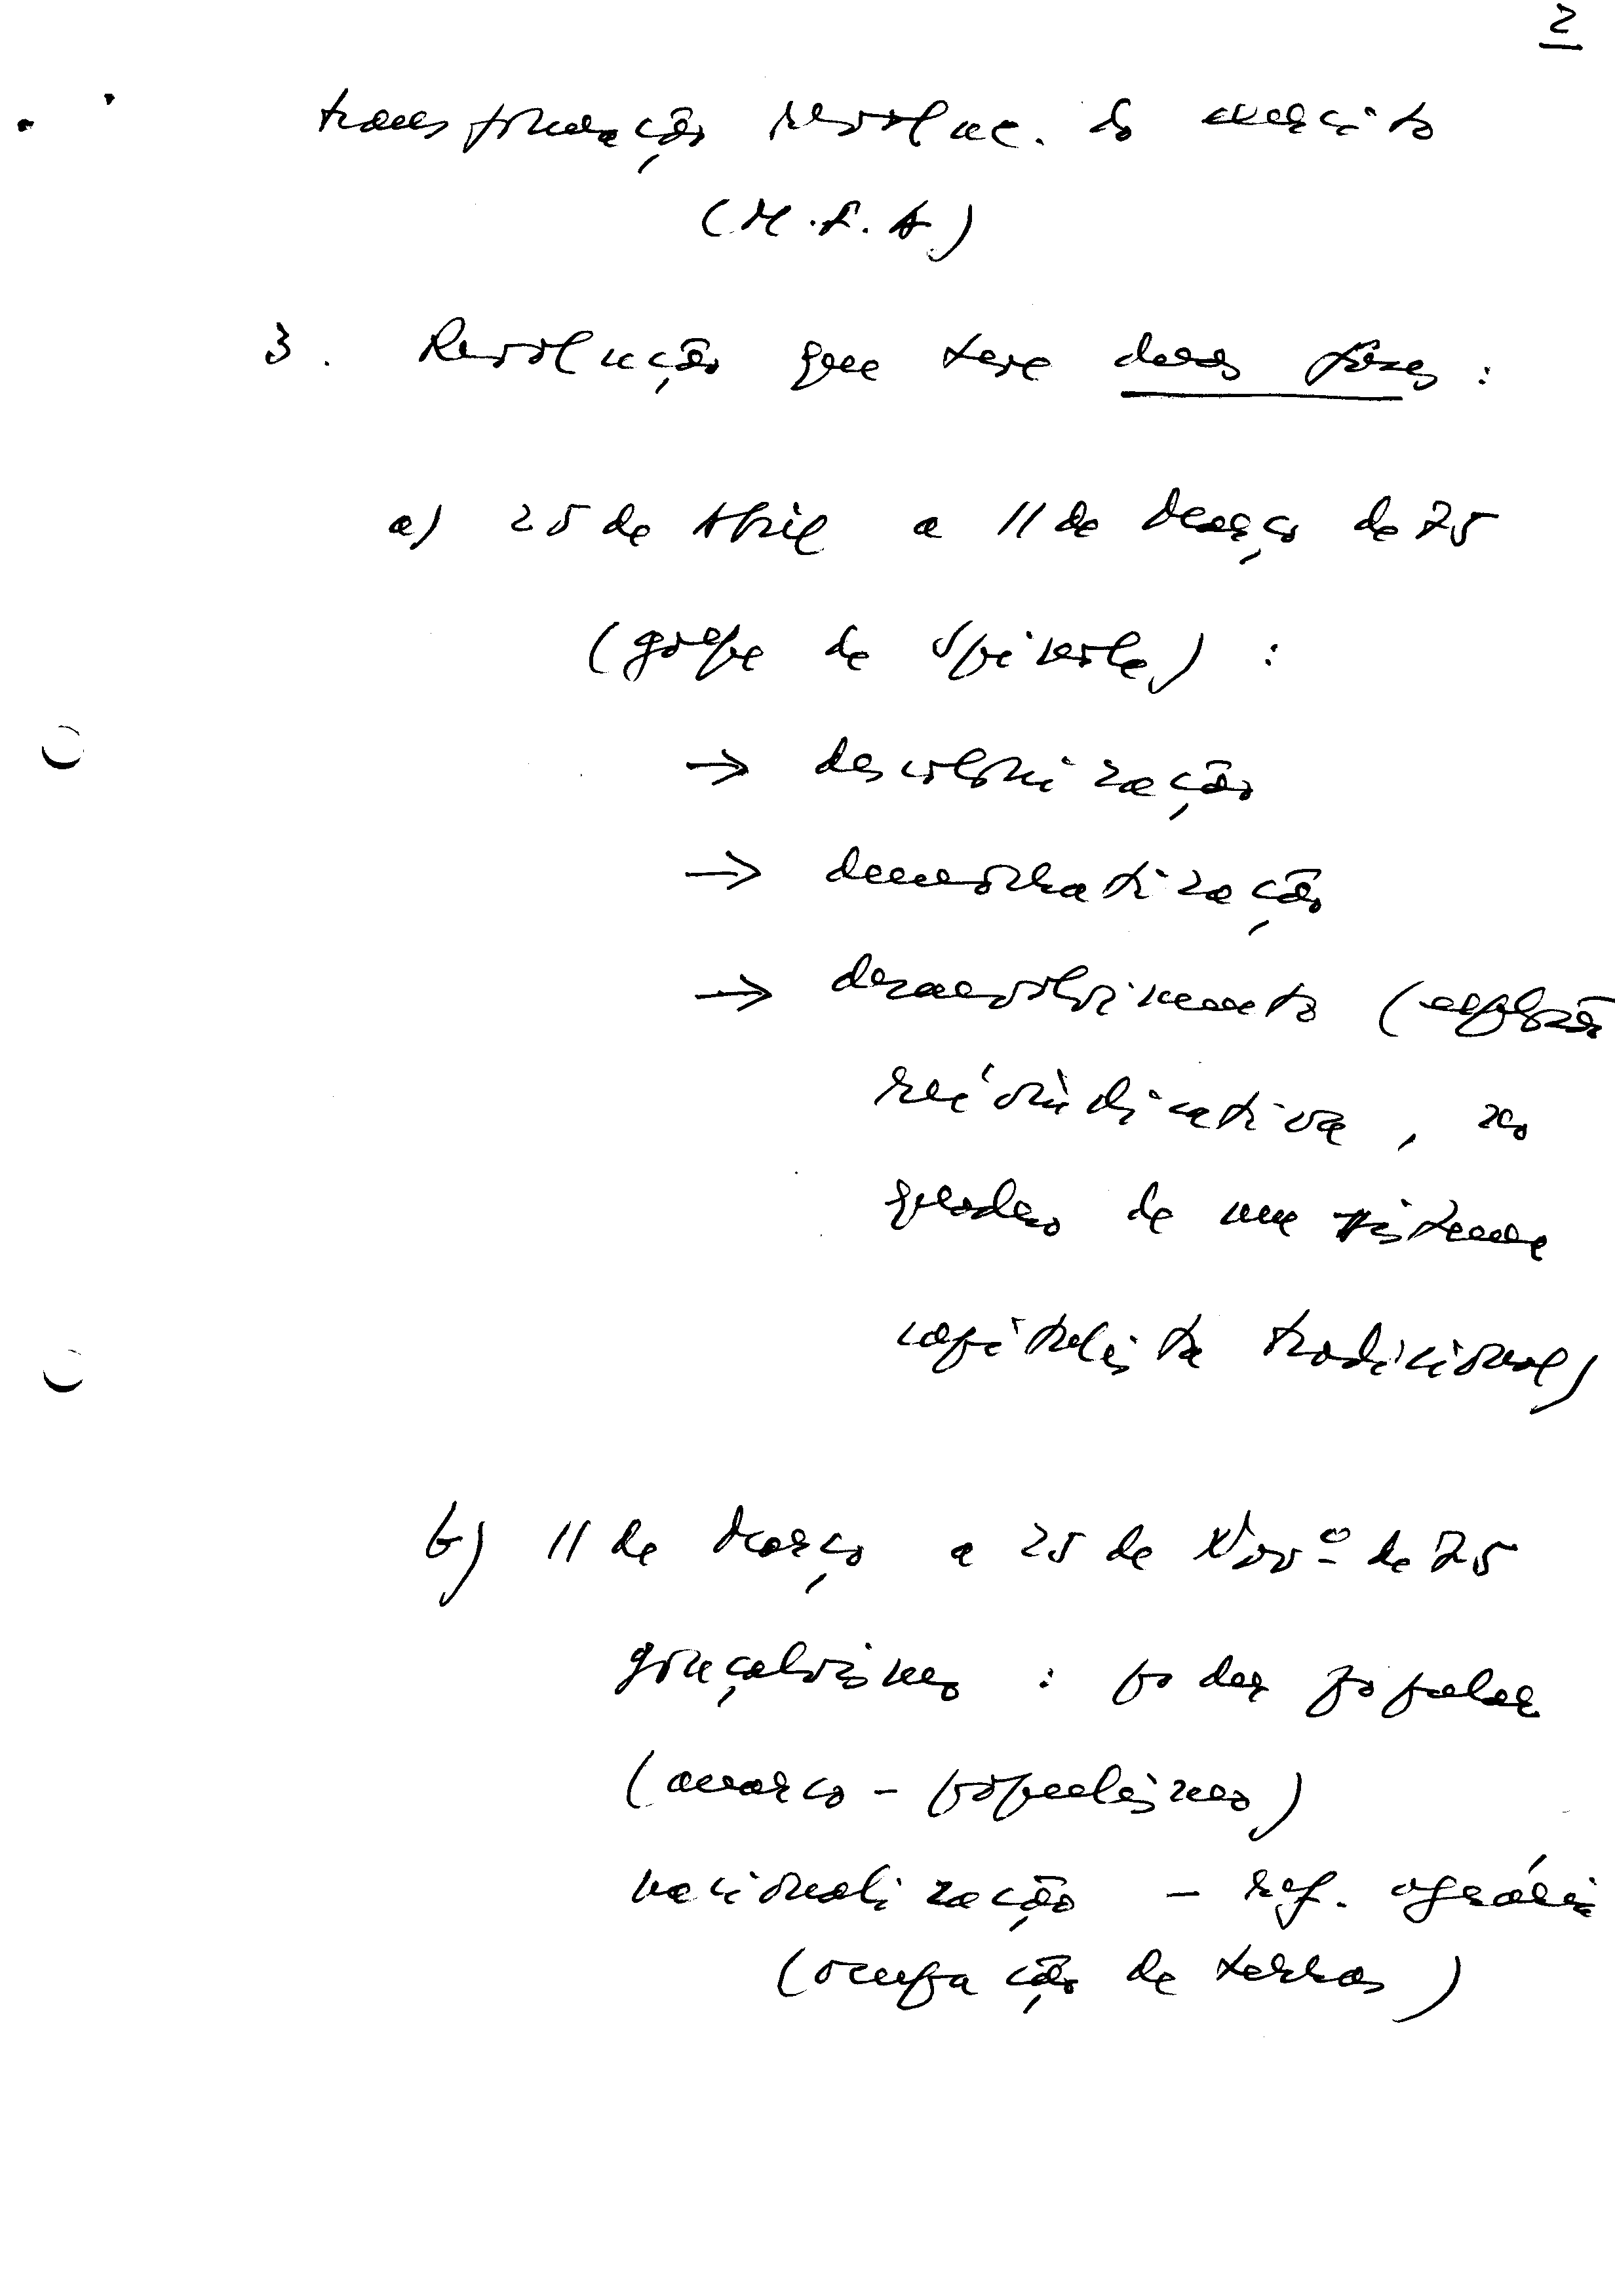 2
transformação revoluc. do exército
(M.F.A.)
3. Revolução que teve duas fases:
a) 25 de Abril a 11 de Março de 75
(golpe de Spínola) :
→ descolonização
→ democratização
→ desenvolvimento (explosão
reivindicativa, no
quadro de um sistema
capitalista tradicional)
b) 11 de Março a 25 de Novº de 75
gonçalvismo : poder popular
(anarco-populismo)
nacionalização - ref. agrária
(ocupação de terras)